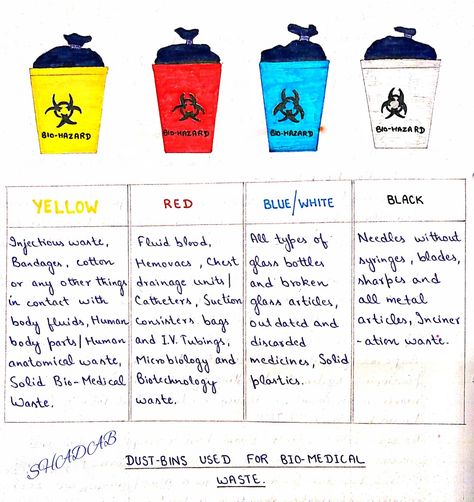 BIO-HAZARD
BIO-HAZARD
BIO-HAZARD
BIO-HAZARD
YELLOW
Injectious waste,
Bandages, cotton
or any other things
in contact with
body fluids, Human
body parts/Human
anatomical waste,
Solid Bio-Medical
Waste.
RED
Fluid blood,
Hemovacs, Chest
drainage units/
Catheters, Suction
consisters bags
and I.V. Tubings,
Microbiology and
Biotechnology
waste.
BLUE/WHITE
All types of
glass bottles
and broken
glass articles,
outdated and
discarded
medicines, Solid
plastics.
BLACK
Needles without
syringes, blades,
sharps and
all metal
articles, Inciner
-ation waste.
SHADAB
DUST-BINS USED FOR BIO-MEDICAL
WASTE.